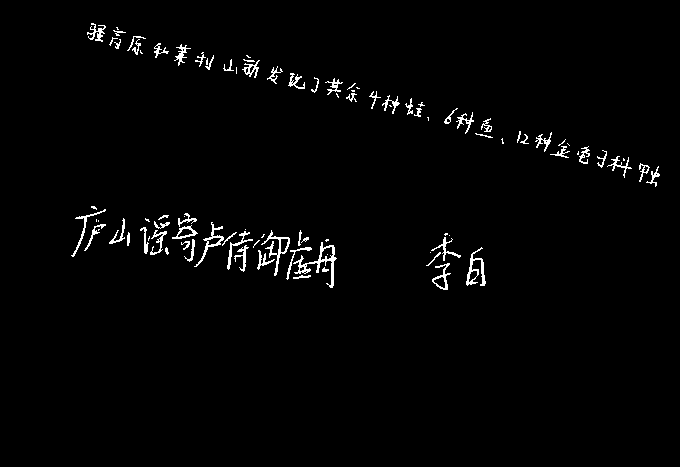 疆高原和莱利山新发现了其余4种蛙、6种鱼、12种金龟子科甲虫
庐山谣寄卢侍御虚舟 李白